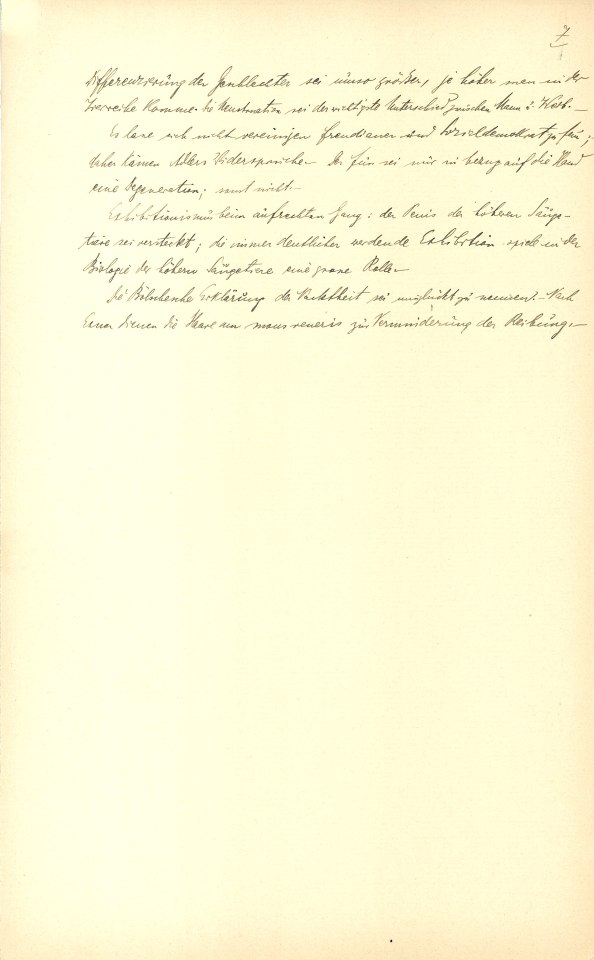 7
Differenzierung der Geschlechter sei umso größer, je höher man in der
Tierreihe komme. Die Menstruation sei der wichtigste Unterschied zwischen Mann u. Weib.–
Es lasse sich nicht vereinigen Freudianer und Sozialdemokrat zu sein;
daher kämen Adlers Widersprüche. Der sei nur in bezug auf die Hand
eine Degeneration; sonst nicht.–
Exhibitionismus beim aufrechten Gang: der Penis der höheren Säuge-
tiere sei versteckt; die immer deutlicher werdende Exhibition spiele in der
Biologie der höhern Säugetiere eine grosse Rolle.–
Die Bölschesche Erklärung der Nacktheit sei unglückt zu nennen.– Nach
Exner dienen die Haare am mons veneris zur Verminderung der Reibung.–